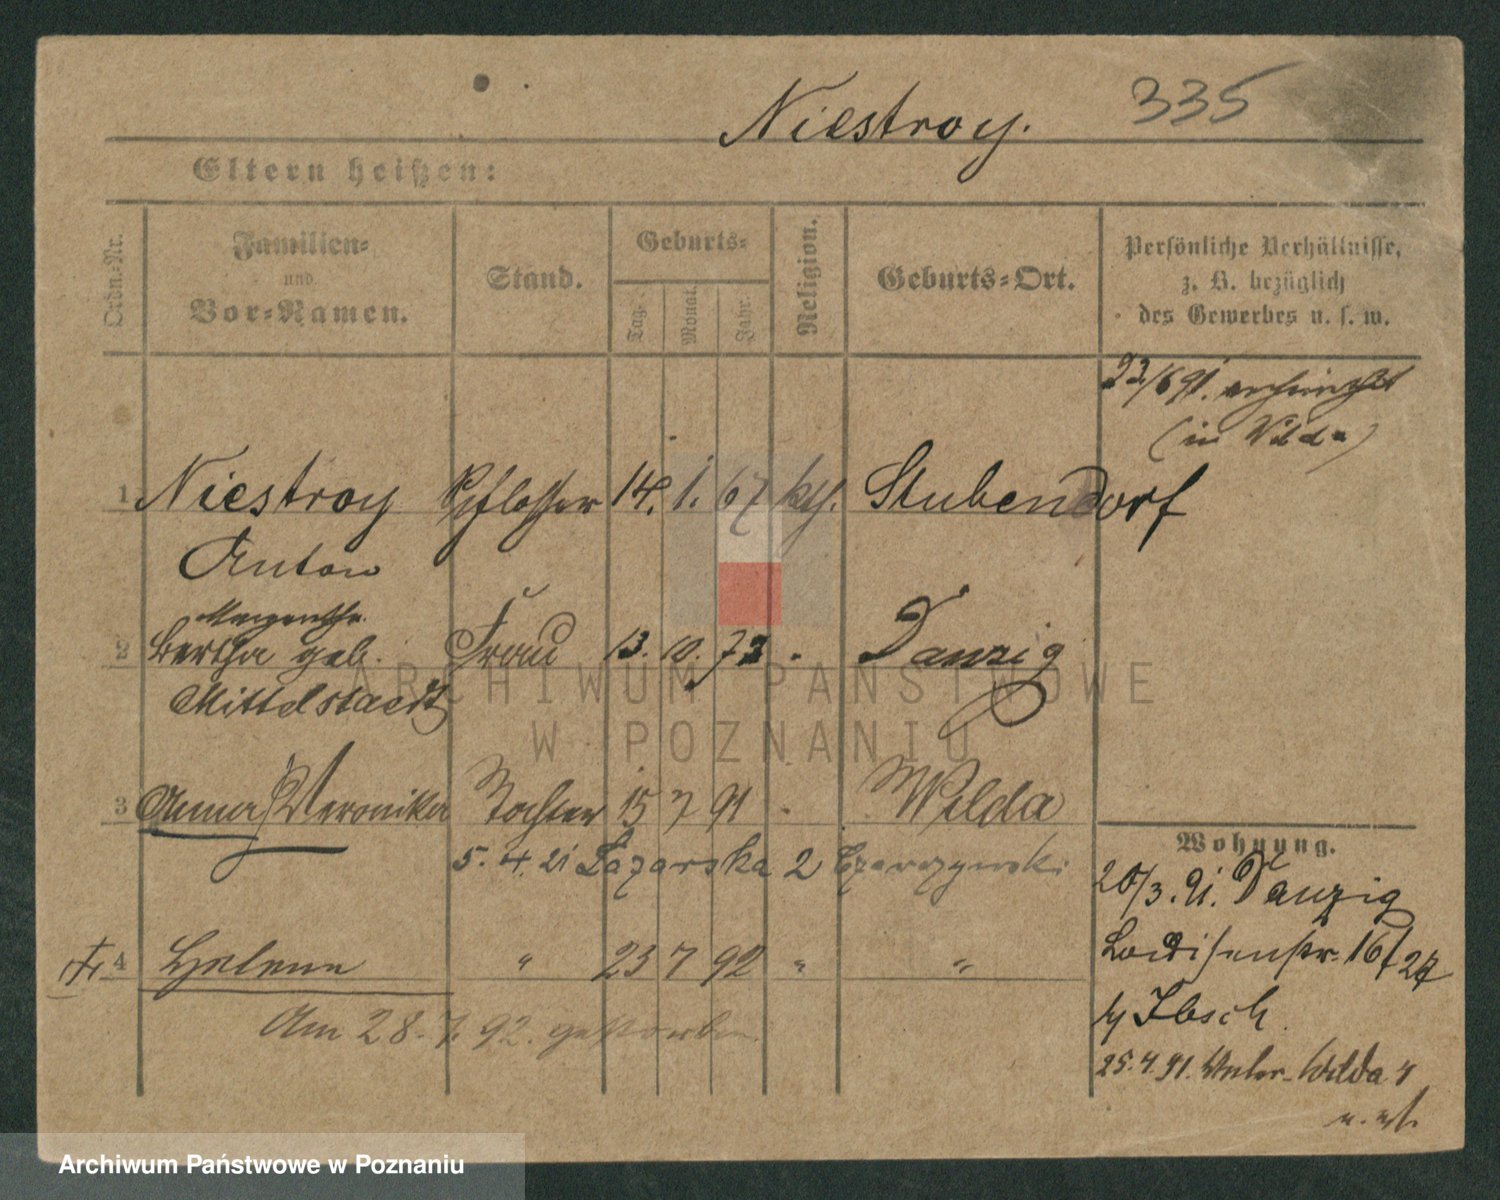 Niestroy.
335
Eltern heißen:
Ordn.-Nr.
Familien-
und
Vor-Namen.
Stand.
Geburts-
Tag.
Monat.
Jahr.
Religion.
Geburts-Ort.
Persönliche Verhältnisse,
z. B. bezüglich
des Gewerbes u. s. w.
23/6 91.
(in Wilda)
1 Niestroy Schlosser 14. 1. 67 kth. Stubendorf
Anton
Margarethe
2 Bertha geb. Frau 13. 10. 73 " Danzig
Mittelstaedt
3 Anna Veronika Tochter 15 7 91 " Wilda
5. 4. 21 Łazarska 2
4 Helene " 23 7 92 " "
Am 28. 7. 92. gestorben.
Wohnung.
20/3. 91. Danzig
16/
Ibsch
25. 4. 91. Unter-Wilda 4
ARCHIWUM PAŃSTWOWE
W POZNANIU
Archiwum Państwowe w Poznaniu